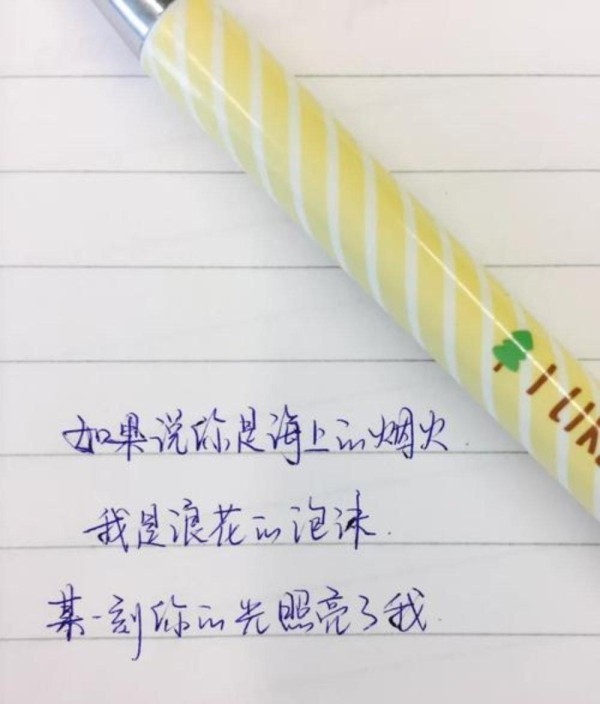 I LIKE
如果说你是海上的烟火
我是浪花的泡沫
某一刻你的光照亮了我